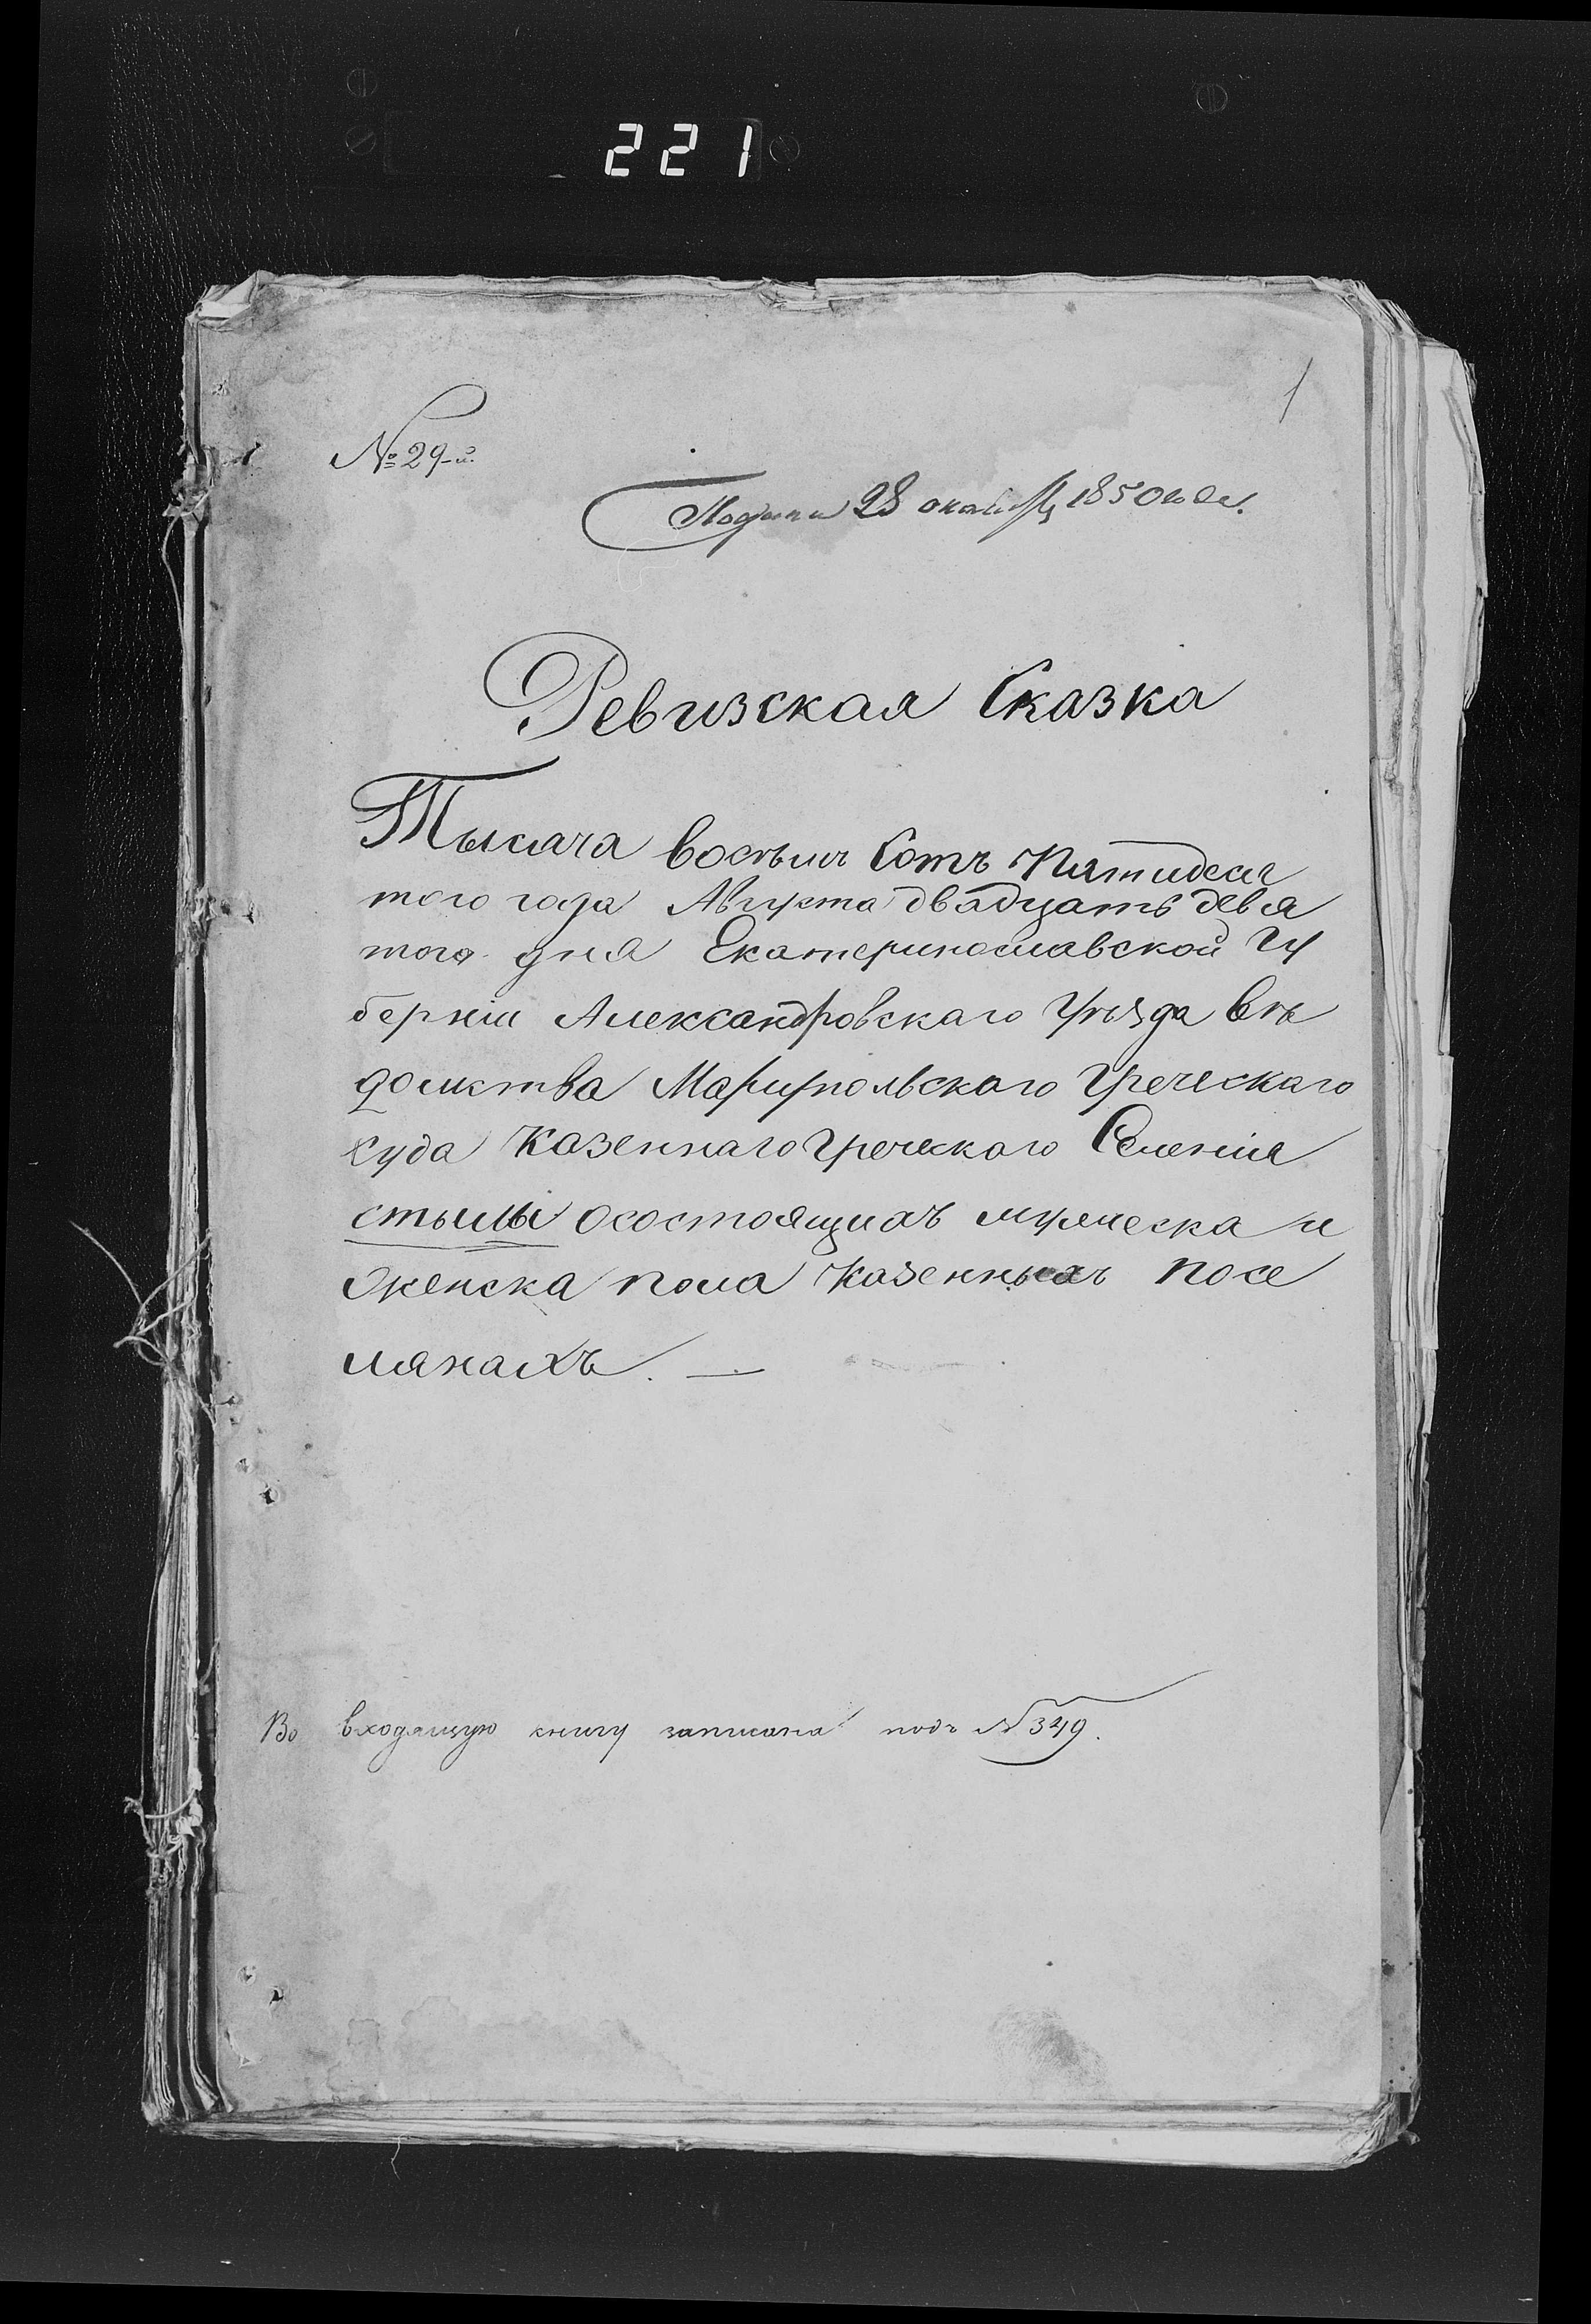 221
1
№ 29-й.
Подана 28 октября 1850 года.
Ревизская Сказка
Тысяча восѣмъ Сотъ Пятидеся
того года Августа двадцать девя
того дня Екатеринославской Гу
берніи Александровскаго Уѣзда Вѣ
домства Маріупольскаго Греческаго
суда Казеннаго Греческаго Селенія
стылы осостоящихъ мужеска и
женска пола Казенныхъ посе
лянахъ. —
Во входящую книгу записана подъ № 349.